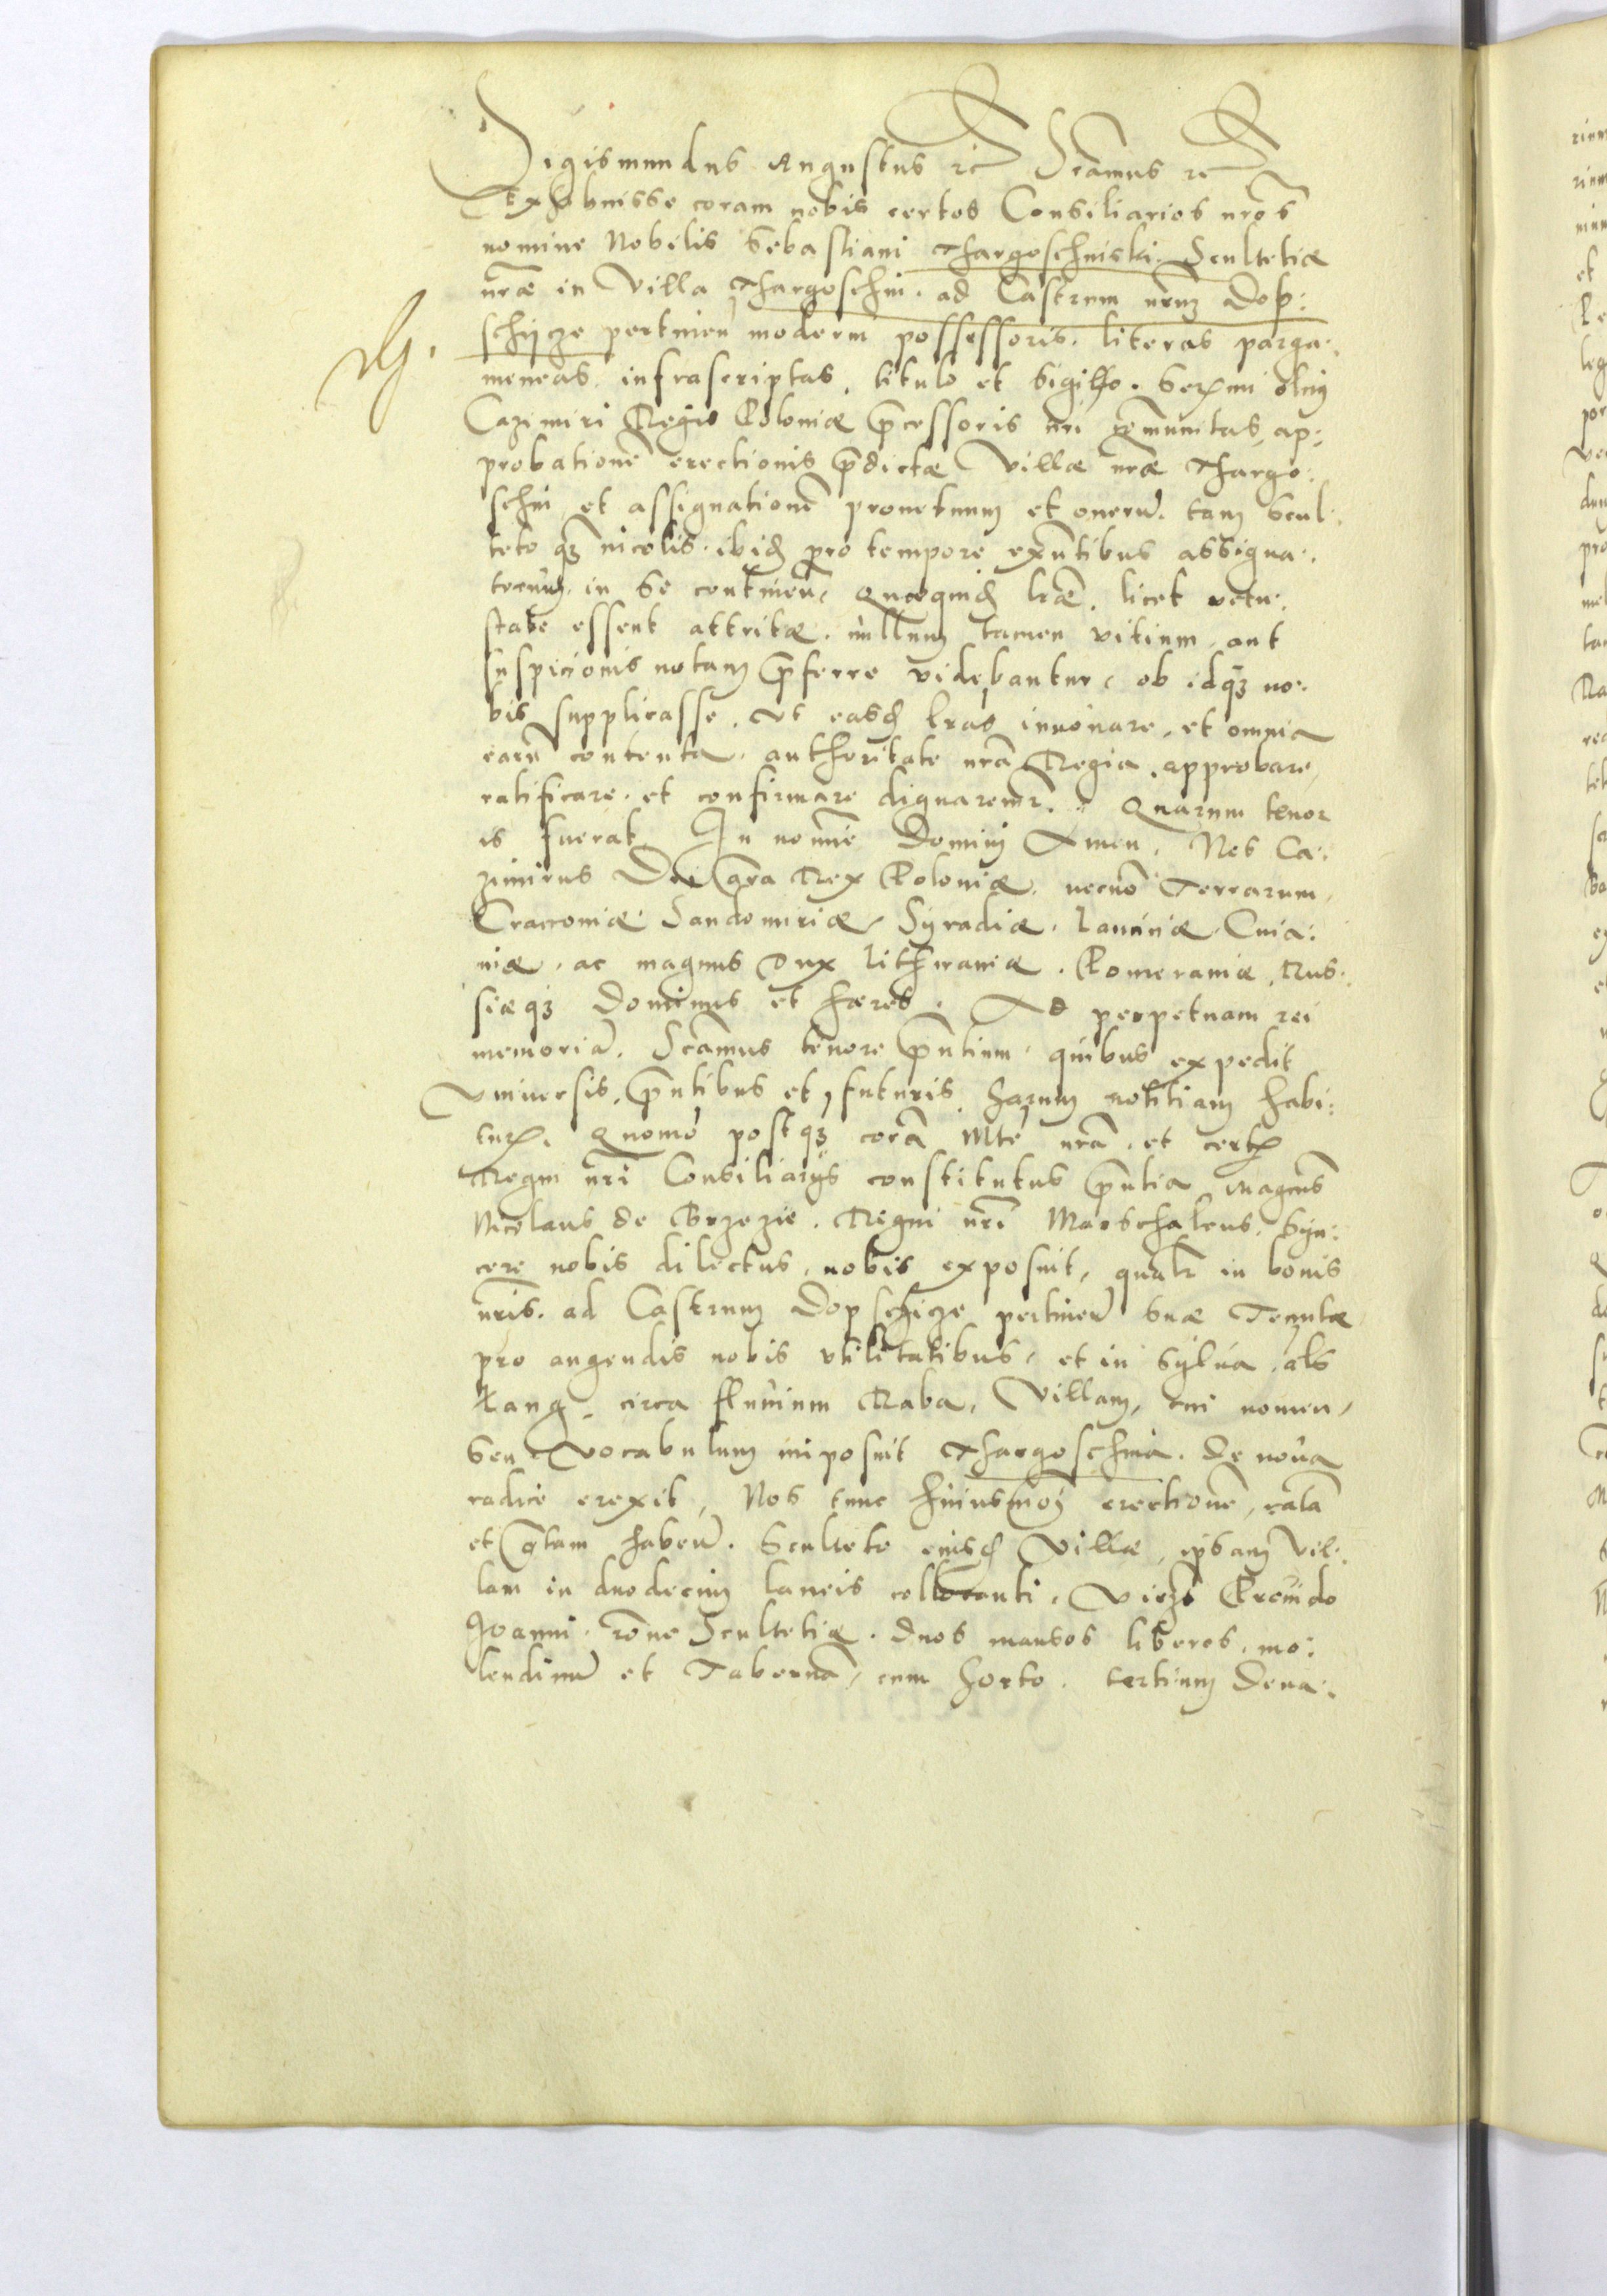 Sigismundus Augustus rc Sẽamus rc
Exhibuisse coram nobis certos Consiliarios nros̃
nomine Nobilis Sebastiani Thargoschinski. Scultetiæ
nr̃æ in Villa Thargoschin. ad Castrum nrũm Dop:
schijcze pertineñ moderni possessoris. literas parga:
meneas. infrascriptas. titulo et sigillo. Serₘi olim
Cazimiri Regis Poloniæ p̃cessoris nri com̃unitas, ap:
probationẽ erectionis p̃dictæ Villæ nr̃æ Thargo:
schin et assignationẽ prouentuum et onerũ. tam Scul:
teto qz̃ incolis. ibid pro tempore exñtibus assigna:
torum. in se contineñ, Quæquid lr̃æ. licet vetu:
state essent attritæ. nullum tamen vitium, aut
suspicionis notam p̃ferre videbantur, ob idqz no:
bis supplicasse, vt easd lr̃as innouare, et omnia
earũ contenta. authoritate nrã Regia approbare,
ratificare. et confirmare dignaremr̃. Quarum tenor
is fuerat In noñie Domini Amen. Nos Ca:
zimirus Dei gr̃a Rex Poloniæ. necnõ Terrarum,
Cracoviæ. Sandomiriæ, Syradiæ. Lanciciæ, Cuia:
uiæ. ac magnus Dux Lithuaniæ. Pomeraniæ, Rus:
siæqz Dominus et hæres. Ad perpetuam rei
memoriã. Sc̃amus tenore p̃ntium. quibus expedit
vniuersis. p̃ntibus et, futuris harum notitiam habi:
tur. Quomõ postqz corã Mte nrã. et cert
Regni nr̃i Consiliarijs constitutus p̃ntia Magcus̃
Nicolaus de Brzezie. Regni nr̃i Marschalcus. Syn:
cere nobis dilectus, nobis exposuit, qualr̃ in bonis
nr̃is. ad Castrum Dopschicze pertineñ suæ Tenutæ
pro augendis nobis vtilitatibus, et in Sylua, als
Lang, circa fluuium Raba, Villam, cui nomen,
seu vocabulum imposuit Thargoschina. de noua
radice erexit, Nos tunc huiusmoi erectionẽ, ratã
et g̃tam habeñ. Sculteto eiusd Villæ, ipsam Vil:
lam in duodecim laneis collocanti. Prouido
Joanni. rõne Scultetiæ. duos mansos liberos. mo:
lendinũ et Tabernã, cum horto. tertium dena: